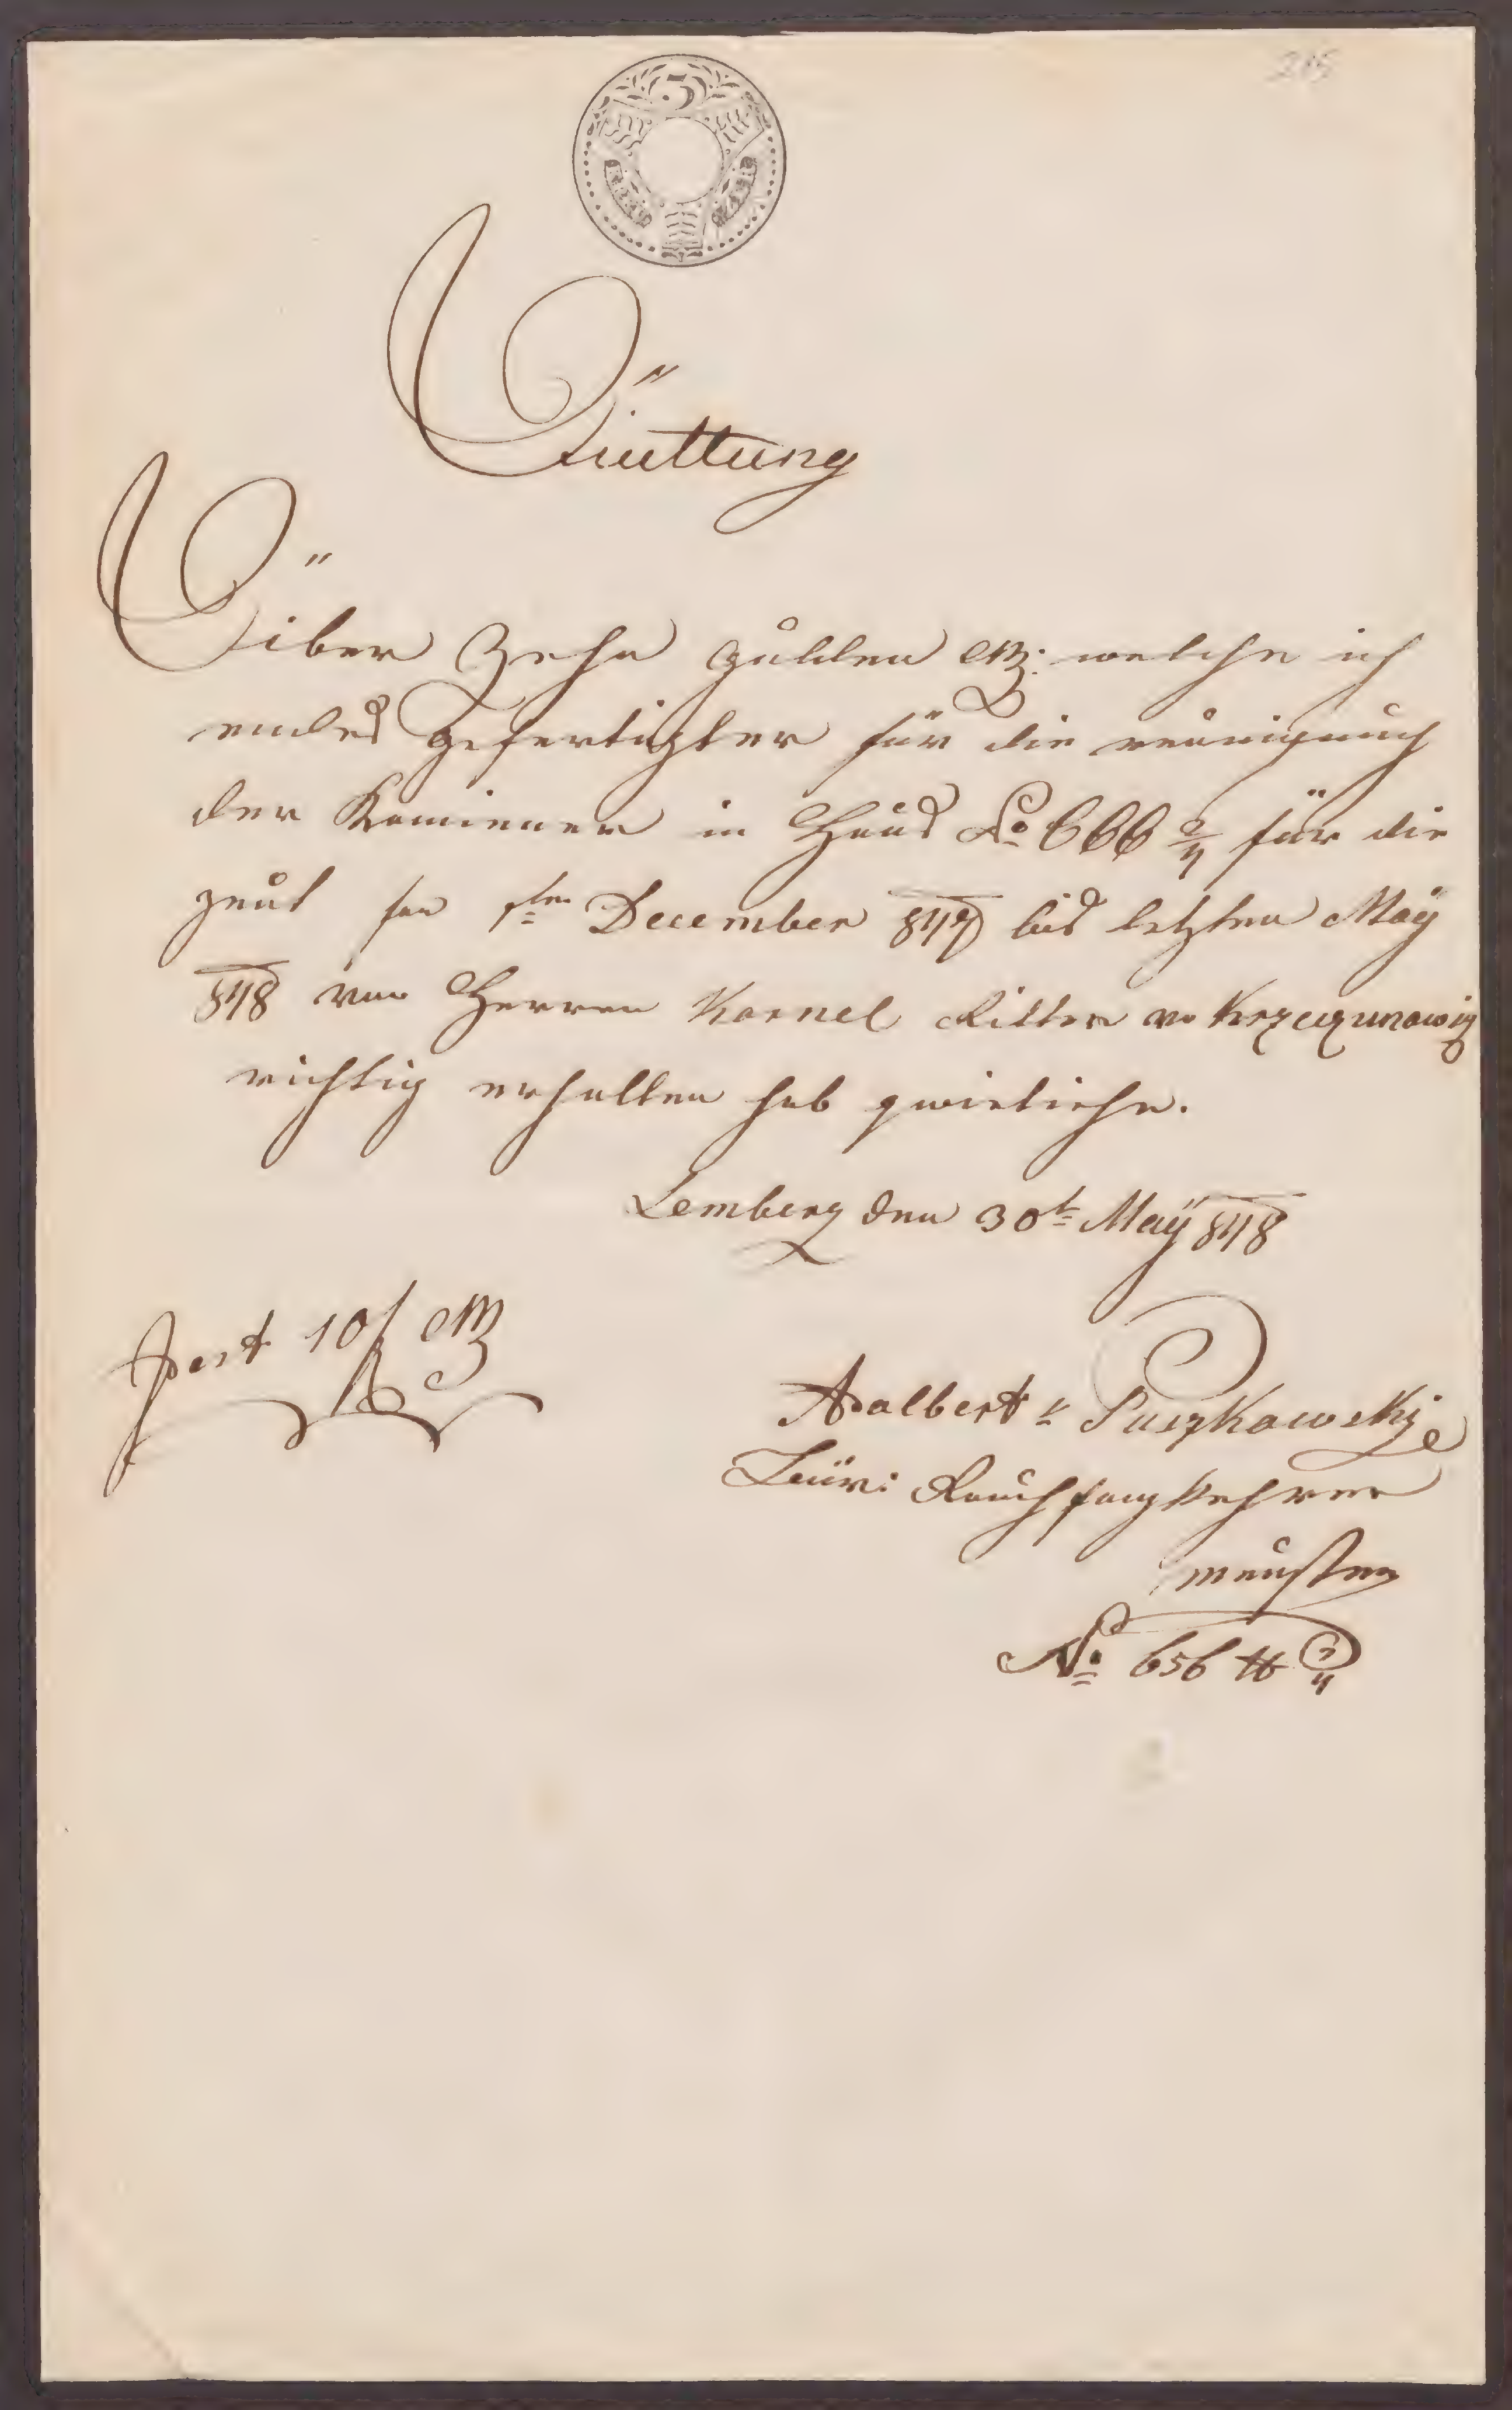 3
Quittung
Über Zehn gulden CM: welche ich
endes gefertigter für die reinigung
der Kaminen in Haus No 666 2/4 für die
zeut fon 1ten December 847 bis letzten Maÿ
848 von Herren Kornel Ritter v. Krzeczunowicz
richtig erhalten hab quietiehe.
Lemberg den 30t Maÿ 848
10f CM
Adalbert v Paszkowski
Rauchfangkehrer
meuster
No 656 2/4